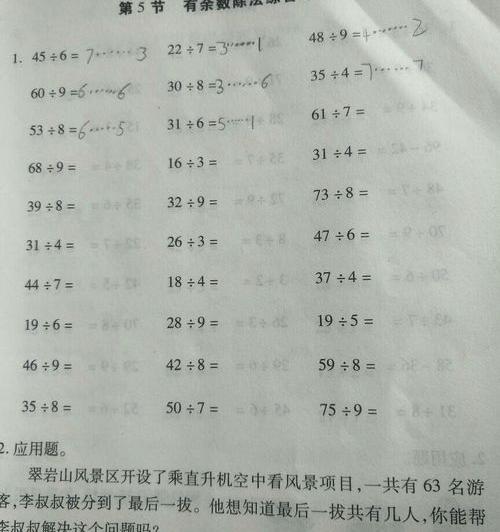 第 5 节 有余数除法综合
1. 45÷6= 7……3 22÷7=3……1 48÷9=4……2
60÷9=6……6 30÷8=3……6 35÷4=7……7
53÷8=6……5 31÷6=5……1 61÷7=
68÷9= 16÷3= 31÷4=
39÷8= 32÷9= 73÷8=
31÷4= 26÷3= 47÷6=
44÷7= 18÷4= 37÷4=
19÷6= 28÷9= 19÷5=
46÷9= 42÷8= 59÷8=
35÷8= 50÷7= 75÷9=
2. 应用题。
翠岩山风景区开设了乘直升机空中看风景项目,一共有 63 名游
客,李叔叔被分到了最后一拨。他想知道最后一拨共有几人,你能帮
李叔叔解决这个问题吗?